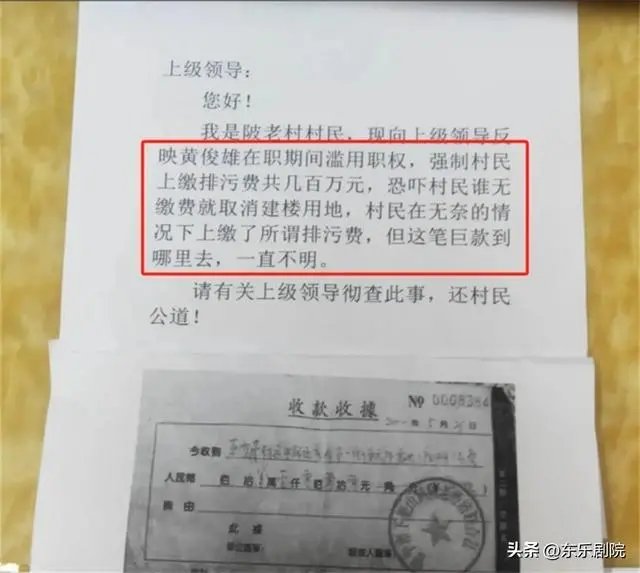 上级领导:
您好!
我是陂老村村民,现向上级领导反
映黄俊雄在职期间滥用职权,强制村民
上缴排污费共几百万元,恐吓村民谁无
缴费就取消建楼用地,村民在无奈的情
况下上缴了所谓排污费,但这笔巨款到
哪里去,一直不明。
请有关上级领导彻查此事,还村民
公道!
收款收據
№ 0008384
年5月
今收到
人民幣 佰拾萬仟佰拾元角
事由
此據
头条 @东乐剧院